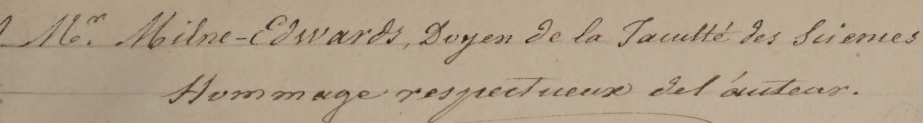 Mr. Milne-Edwards, Doyen de la Faculté des Sciences
Hommage respectueux de l'auteur.